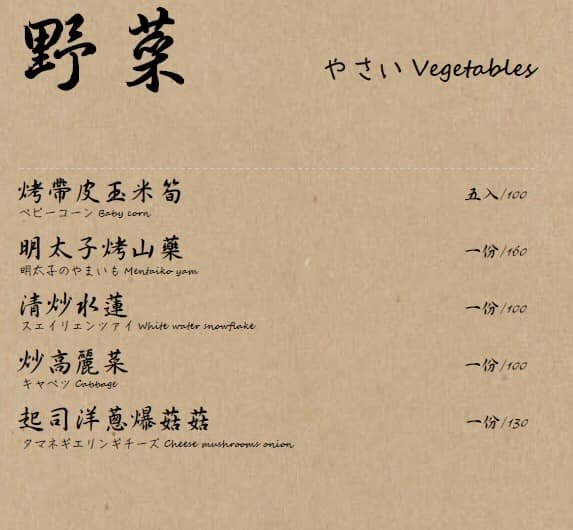 野菜
やさい Vegetables
烤帶皮玉米筍 五入/100
ベビーコーン Baby corn
明太子烤山藥 一份/160
明太子のやまいも Mentaiko yam
清炒水蓮 一份/100
スエイリエンツァイ White water snowflake
炒高麗菜 一份/100
キャベツ Cabbage
起司洋蔥爆菇菇 一份/130
タマネギエリンギチーズ Cheese mushrooms onion